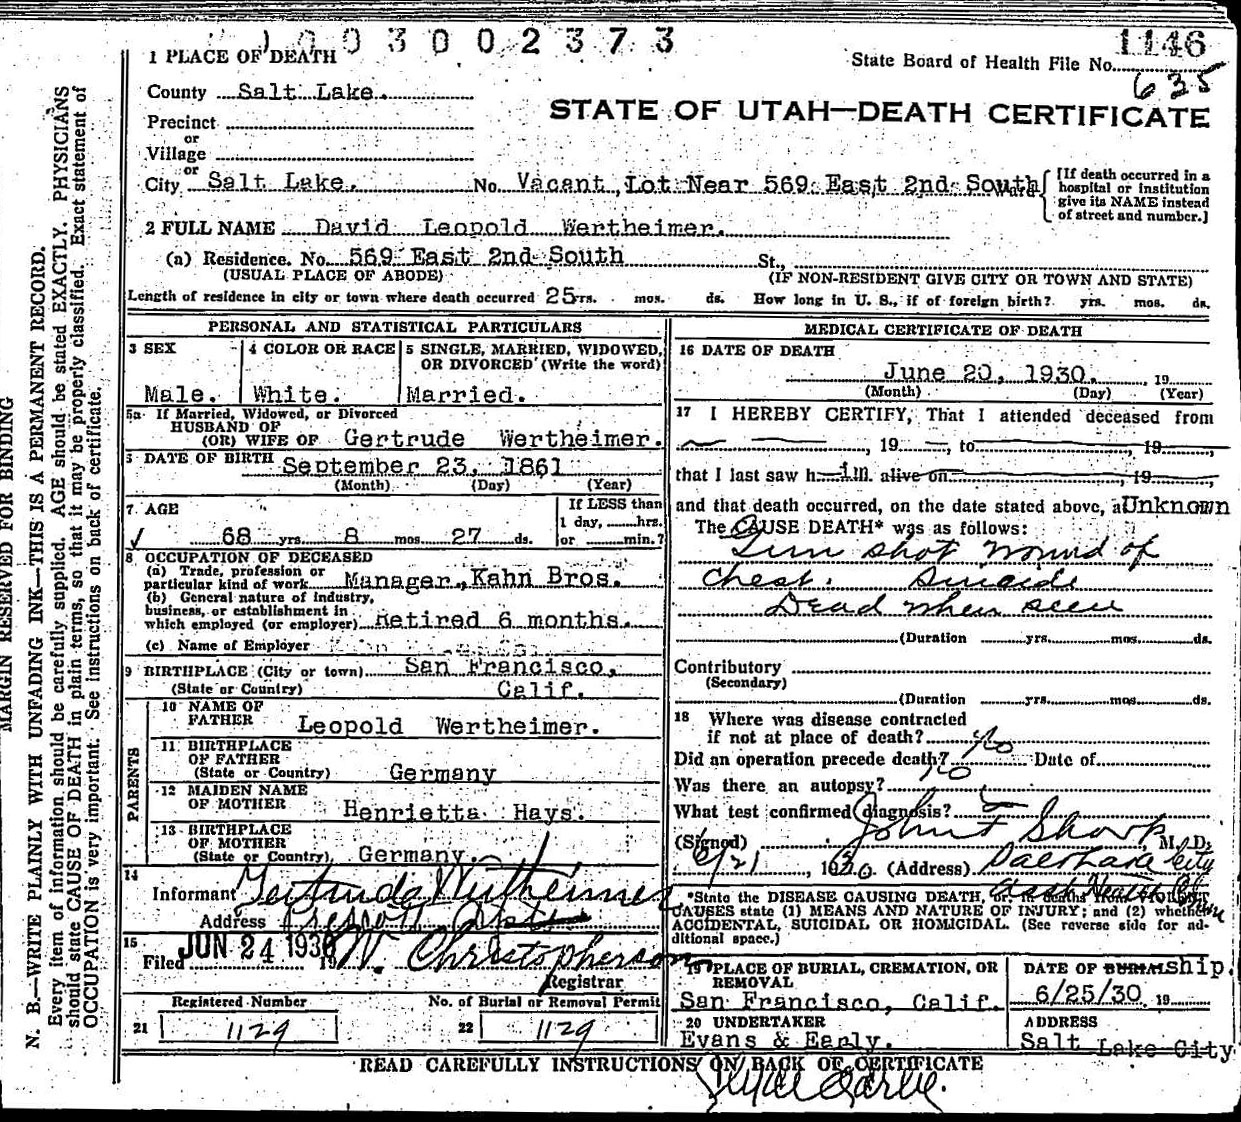 1003002373
1146
State Board of Health File No.
635
1 PLACE OF DEATH
County Salt Lake.
STATE OF UTAH—DEATH CERTIFICATE
Precinct
or
Village
or
City Salt Lake. No. Vacant Lot Near 569 East 2nd South Ward
[If death occurred in a hospital or institution give its NAME instead of street and number.]
2 FULL NAME David Leopold Wertheimer.
(a) Residence. No. 569 East 2nd South St.,
(USUAL PLACE OF ABODE) (IF NON-RESIDENT GIVE CITY OR TOWN AND STATE)
Length of residence in city or town where death occurred 25 yrs. mos. ds. How long in U. S., if of foreign birth? yrs. mos. ds.
PERSONAL AND STATISTICAL PARTICULARS
3 SEX
Male.
4 COLOR OR RACE
White.
5 SINGLE, MARRIED, WIDOWED,
OR DIVORCED (Write the word)
Married.
5a If Married, Widowed, or Divorced
HUSBAND OF
(OR) WIFE OF Gertrude Wertheimer.
DATE OF BIRTH September 23, 1861
(Month) (Day) (Year)
7 AGE
If LESS than
1 day, hrs.
or min.?
68 yrs. 8 mos. 27 ds.
8 OCCUPATION OF DECEASED
(a) Trade, profession or
particular kind of work Manager, Kahn Bros.
(b) General nature of industry,
business, or establishment in
which employed (or employer) Retired 6 months.
(c) Name of Employer
9 BIRTHPLACE (City or town) San Francisco,
(State or Country) Calif.
PARENTS
10 NAME OF
FATHER Leopold Wertheimer.
11 BIRTHPLACE
OF FATHER
(State or Country) Germany
12 MAIDEN NAME
OF MOTHER Henrietta Hays.
13 BIRTHPLACE
OF MOTHER
(State or Country) Germany.
14
Informant Gertrude Wertheimer
Address
15
Filed JUN 24 1930 19 W. Christopherson
Registrar
Registered Number
21 1129
No. of Burial or Removal Permit
22 1129
MEDICAL CERTIFICATE OF DEATH
16 DATE OF DEATH
June 20, 1930. 19
(Month) (Day) (Year)
17 I HEREBY CERTIFY, That I attended deceased from
, 19 , to , 19 ,
that I last saw h im alive on , 19 ,
and that death occurred, on the date stated above, a Unknown
The CAUSE DEATH* was as follows:
Gun shot wound of
chest. Suicide
Dead when seen
(Duration yrs. mos. ds.
Contributory
(Secondary)
(Duration yrs. mos. ds.
18 Where was disease contracted
if not at place of death?
Did an operation precede death? No Date of
Was there an autopsy? No
What test confirmed diagnosis?
(Signed) John F Sharp M. D.
6/21, 1930. (Address) Salt Lake City
*State the DISEASE CAUSING DEATH, or, in deaths from VIOLENT
CAUSES state (1) MEANS AND NATURE OF INJURY; and (2) whether
ACCIDENTAL, SUICIDAL OR HOMICIDAL. (See reverse side for ad-
ditional space.)
19 PLACE OF BURIAL, CREMATION, OR
REMOVAL
San Francisco, Calif.
DATE OF BURIAL ship.
6/25/30 19
20 UNDERTAKER
Evans & Early.
ADDRESS
Salt Lake City
READ CAREFULLY INSTRUCTIONS ON BACK OF CERTIFICATE
MARGIN RESERVED FOR BINDING
N. B.—WRITE PLAINLY WITH UNFADING INK—THIS IS A PERMANENT RECORD.
Every item of information should be carefully supplied. AGE should be stated EXACTLY. PHYSICIANS
should state CAUSE OF DEATH in plain terms, so that it may be properly classified. Exact statement of
OCCUPATION is very important. See instructions on back of certificate.